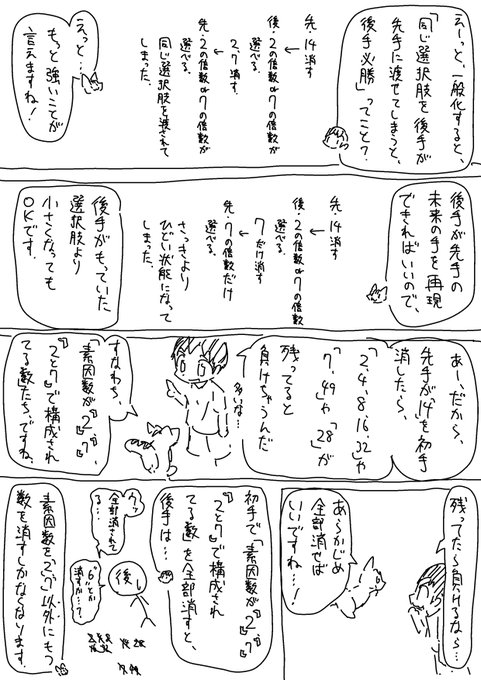 えーっと、一般化すると、
「同じ選択肢を後手が
先手に渡せてしまうと、
後手必勝」ってこと？
先・14消す
↓
後・2の倍数or7の倍数が
選べる。
↓
2、7消す。
↓
先・2の倍数or7の倍数が
選べる。
同じ選択肢を渡されて
しまった、
えっと…
もっと強いことが
言えますね！
後手が先手の
未来の手を再現
できればいいので、
先・14消す
↓
後・2の倍数or7の倍数
選べる。
↓
7だけ消す
↓
先・7の倍数だけ
選べる。
さっきより
ひどい状態になって
しまった、
後手がもっていた
選択肢より
小さくなっても
OKです。
あー、だから、
先手が14を初手
消したら、
「2、4、8、16、32」や
「7、49」や「28」が
残ってると
負けちゃうんだ
多いな…
すなわち、
「素因数が『2』『7』、
『2と7』で構成され
てる数」たち、ですね、
残ってたら負けるなら…
あらかじめ
全部消せば
いいですね…！
初手で「素因数が『2』『7』
『2と7』で構成され
てる数」を全部消すと、
後手は…
ウッ
全部消されて
る…
後し
“6”とか
消すか…？
素因数を2、7以外にもつ
数を消すしかなくなります。